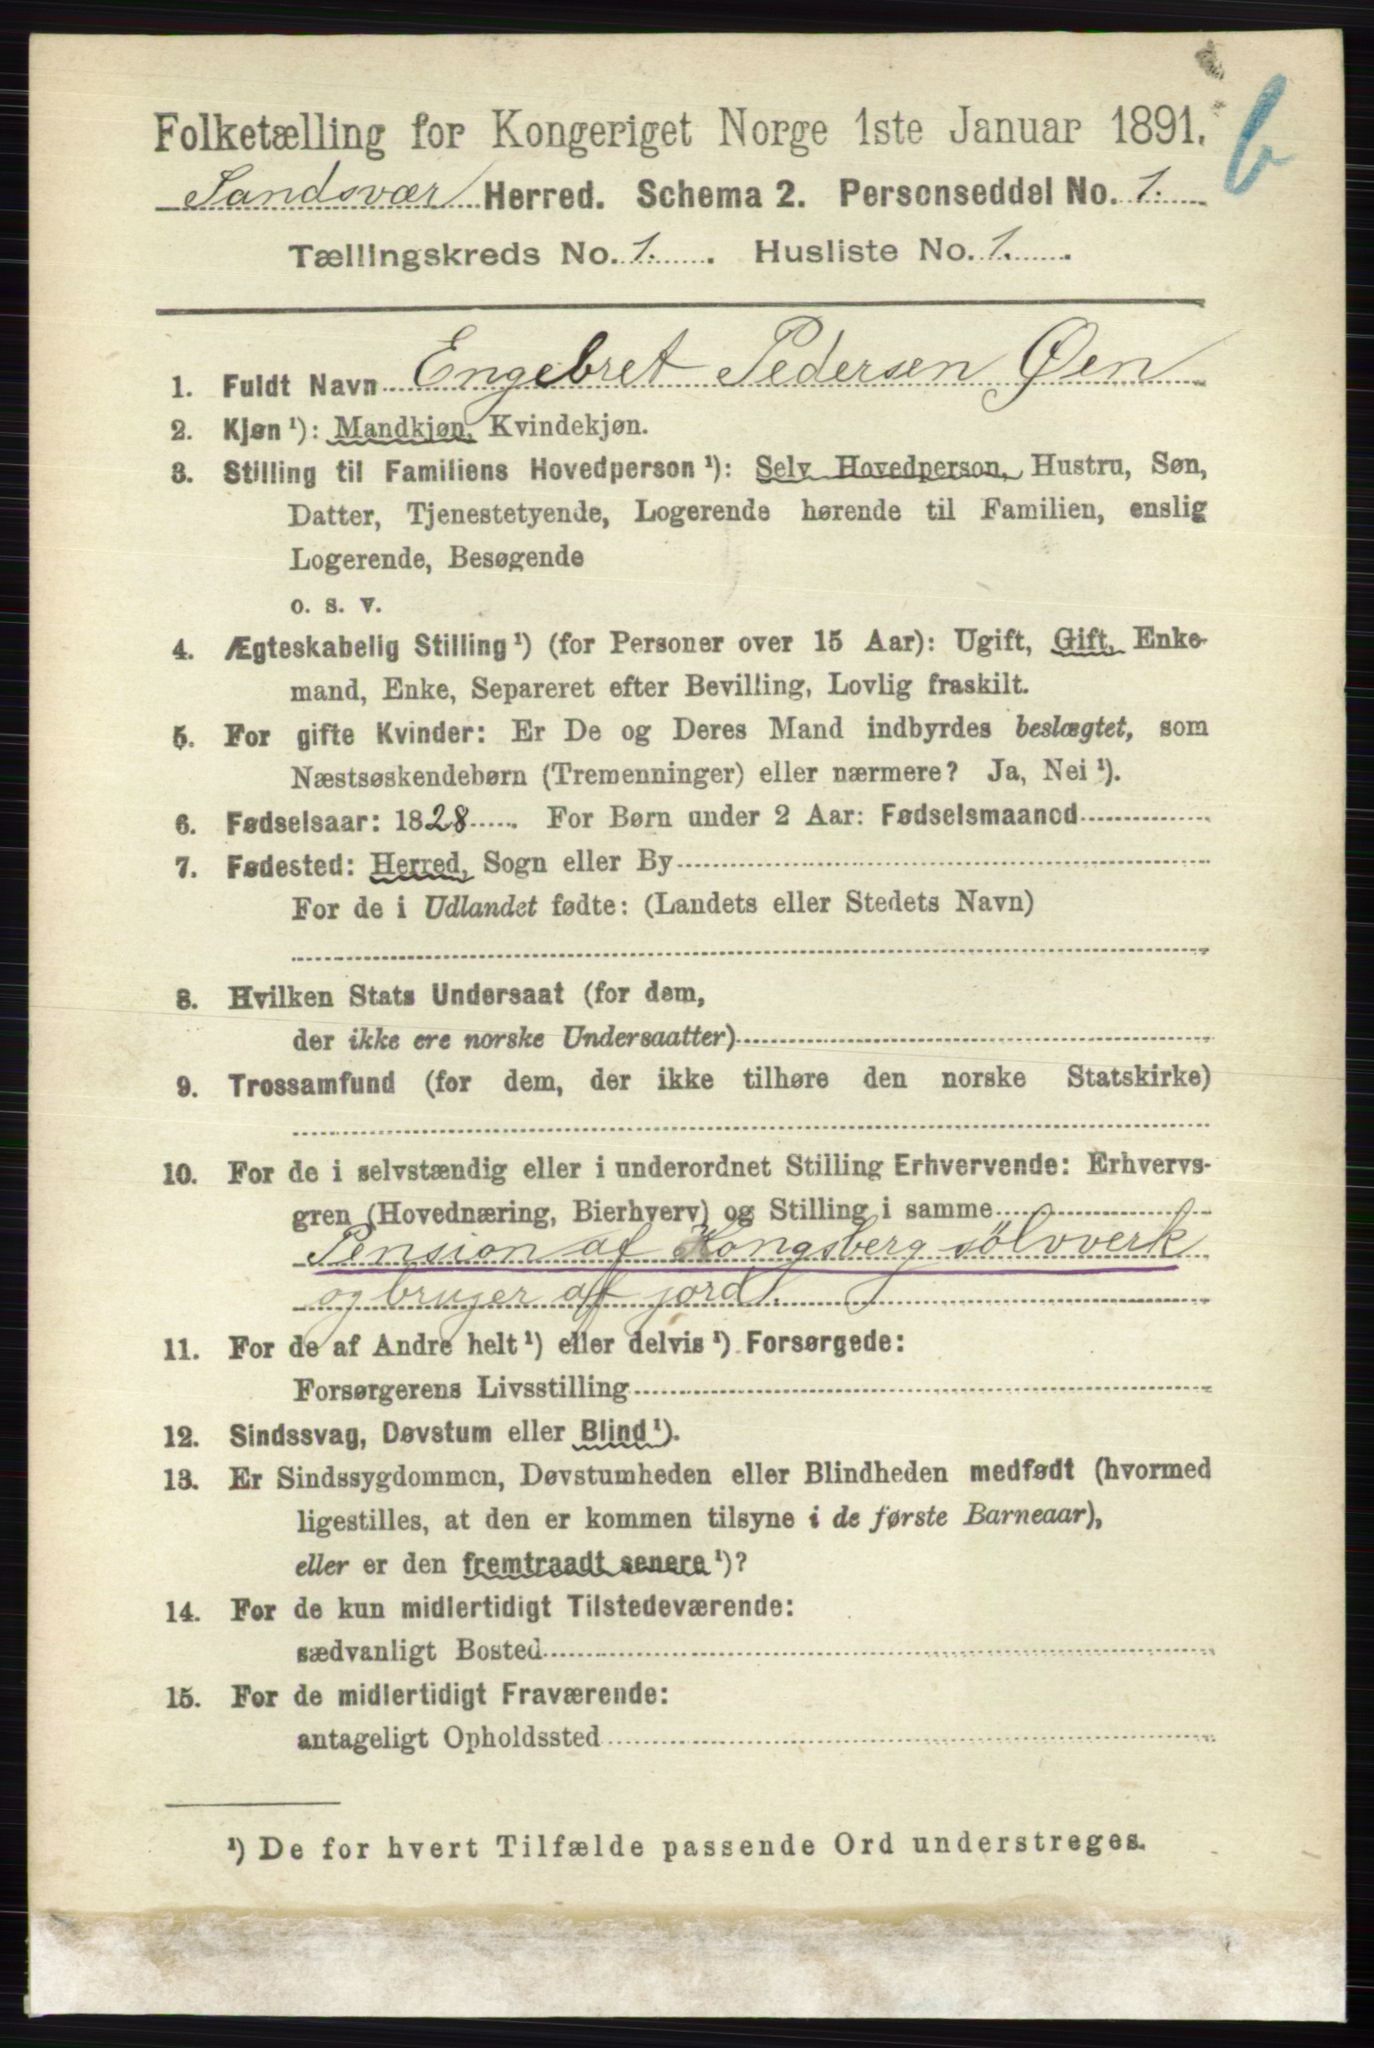 Folketælling for Kongeriget Norge 1ste Januar 1891.
b
Sandsvær Herred. Schema 2. Personseddel No. 1.
Tællingskreds No. 1. Husliste No. 1.
1. Fuldt Navn Engebret Pedersen Øen
2. Kjøn ¹): Mandkjøn, Kvindekjøn.
3. Stilling til Familiens Hovedperson ¹): Selv Hovedperson, Hustru, Søn,
Datter, Tjenestetyende, Logerende hørende til Familien, enslig
Logerende, Besøgende
o. s. v.
4. Ægteskabelig Stilling ¹) (for Personer over 15 Aar): Ugift, Gift, Enke-
mand, Enke, Separeret efter Bevilling, Lovlig fraskilt.
5. For gifte Kvinder: Er De og Deres Mand indbyrdes beslægtet, som
Næstsøskendebørn (Tremenninger) eller nærmere? Ja, Nei ¹).
6. Fødselsaar: 1828. For Børn under 2 Aar: Fødselsmaaned
7. Fødested: Herred, Sogn eller By
For de i Udlandet fødte: (Landets eller Stedets Navn)
8. Hvilken Stats Undersaat (for dem,
der ikke ere norske Undersaatter)
9. Trossamfund (for dem, der ikke tilhøre den norske Statskirke)
10. For de i selvstændig eller i underordnet Stilling Erhvervende: Erhvervs-
gren (Hovednæring, Bierhverv) og Stilling i samme
Pension af Kongsberg sölvverk
og bruger af jord.
11. For de af Andre helt ¹) eller delvis ¹) Forsørgede:
Forsørgerens Livsstilling
12. Sindssvag, Døvstum eller Blind ¹).
13. Er Sindssygdommen, Døvstumheden eller Blindheden medfødt (hvormed
ligestilles, at den er kommen tilsyne i de første Barneaar),
eller er den fremtraadt senere ¹)?
14. For de kun midlertidigt Tilstedeværende:
sædvanligt Bosted
15. For de midlertidigt Fraværende:
antageligt Opholdssted
¹) De for hvert Tilfælde passende Ord understreges.